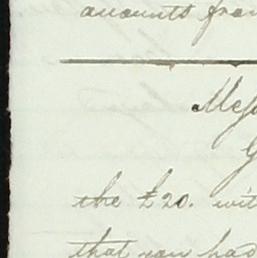 accounts fro
Mess
G
the £20. wit
that you had